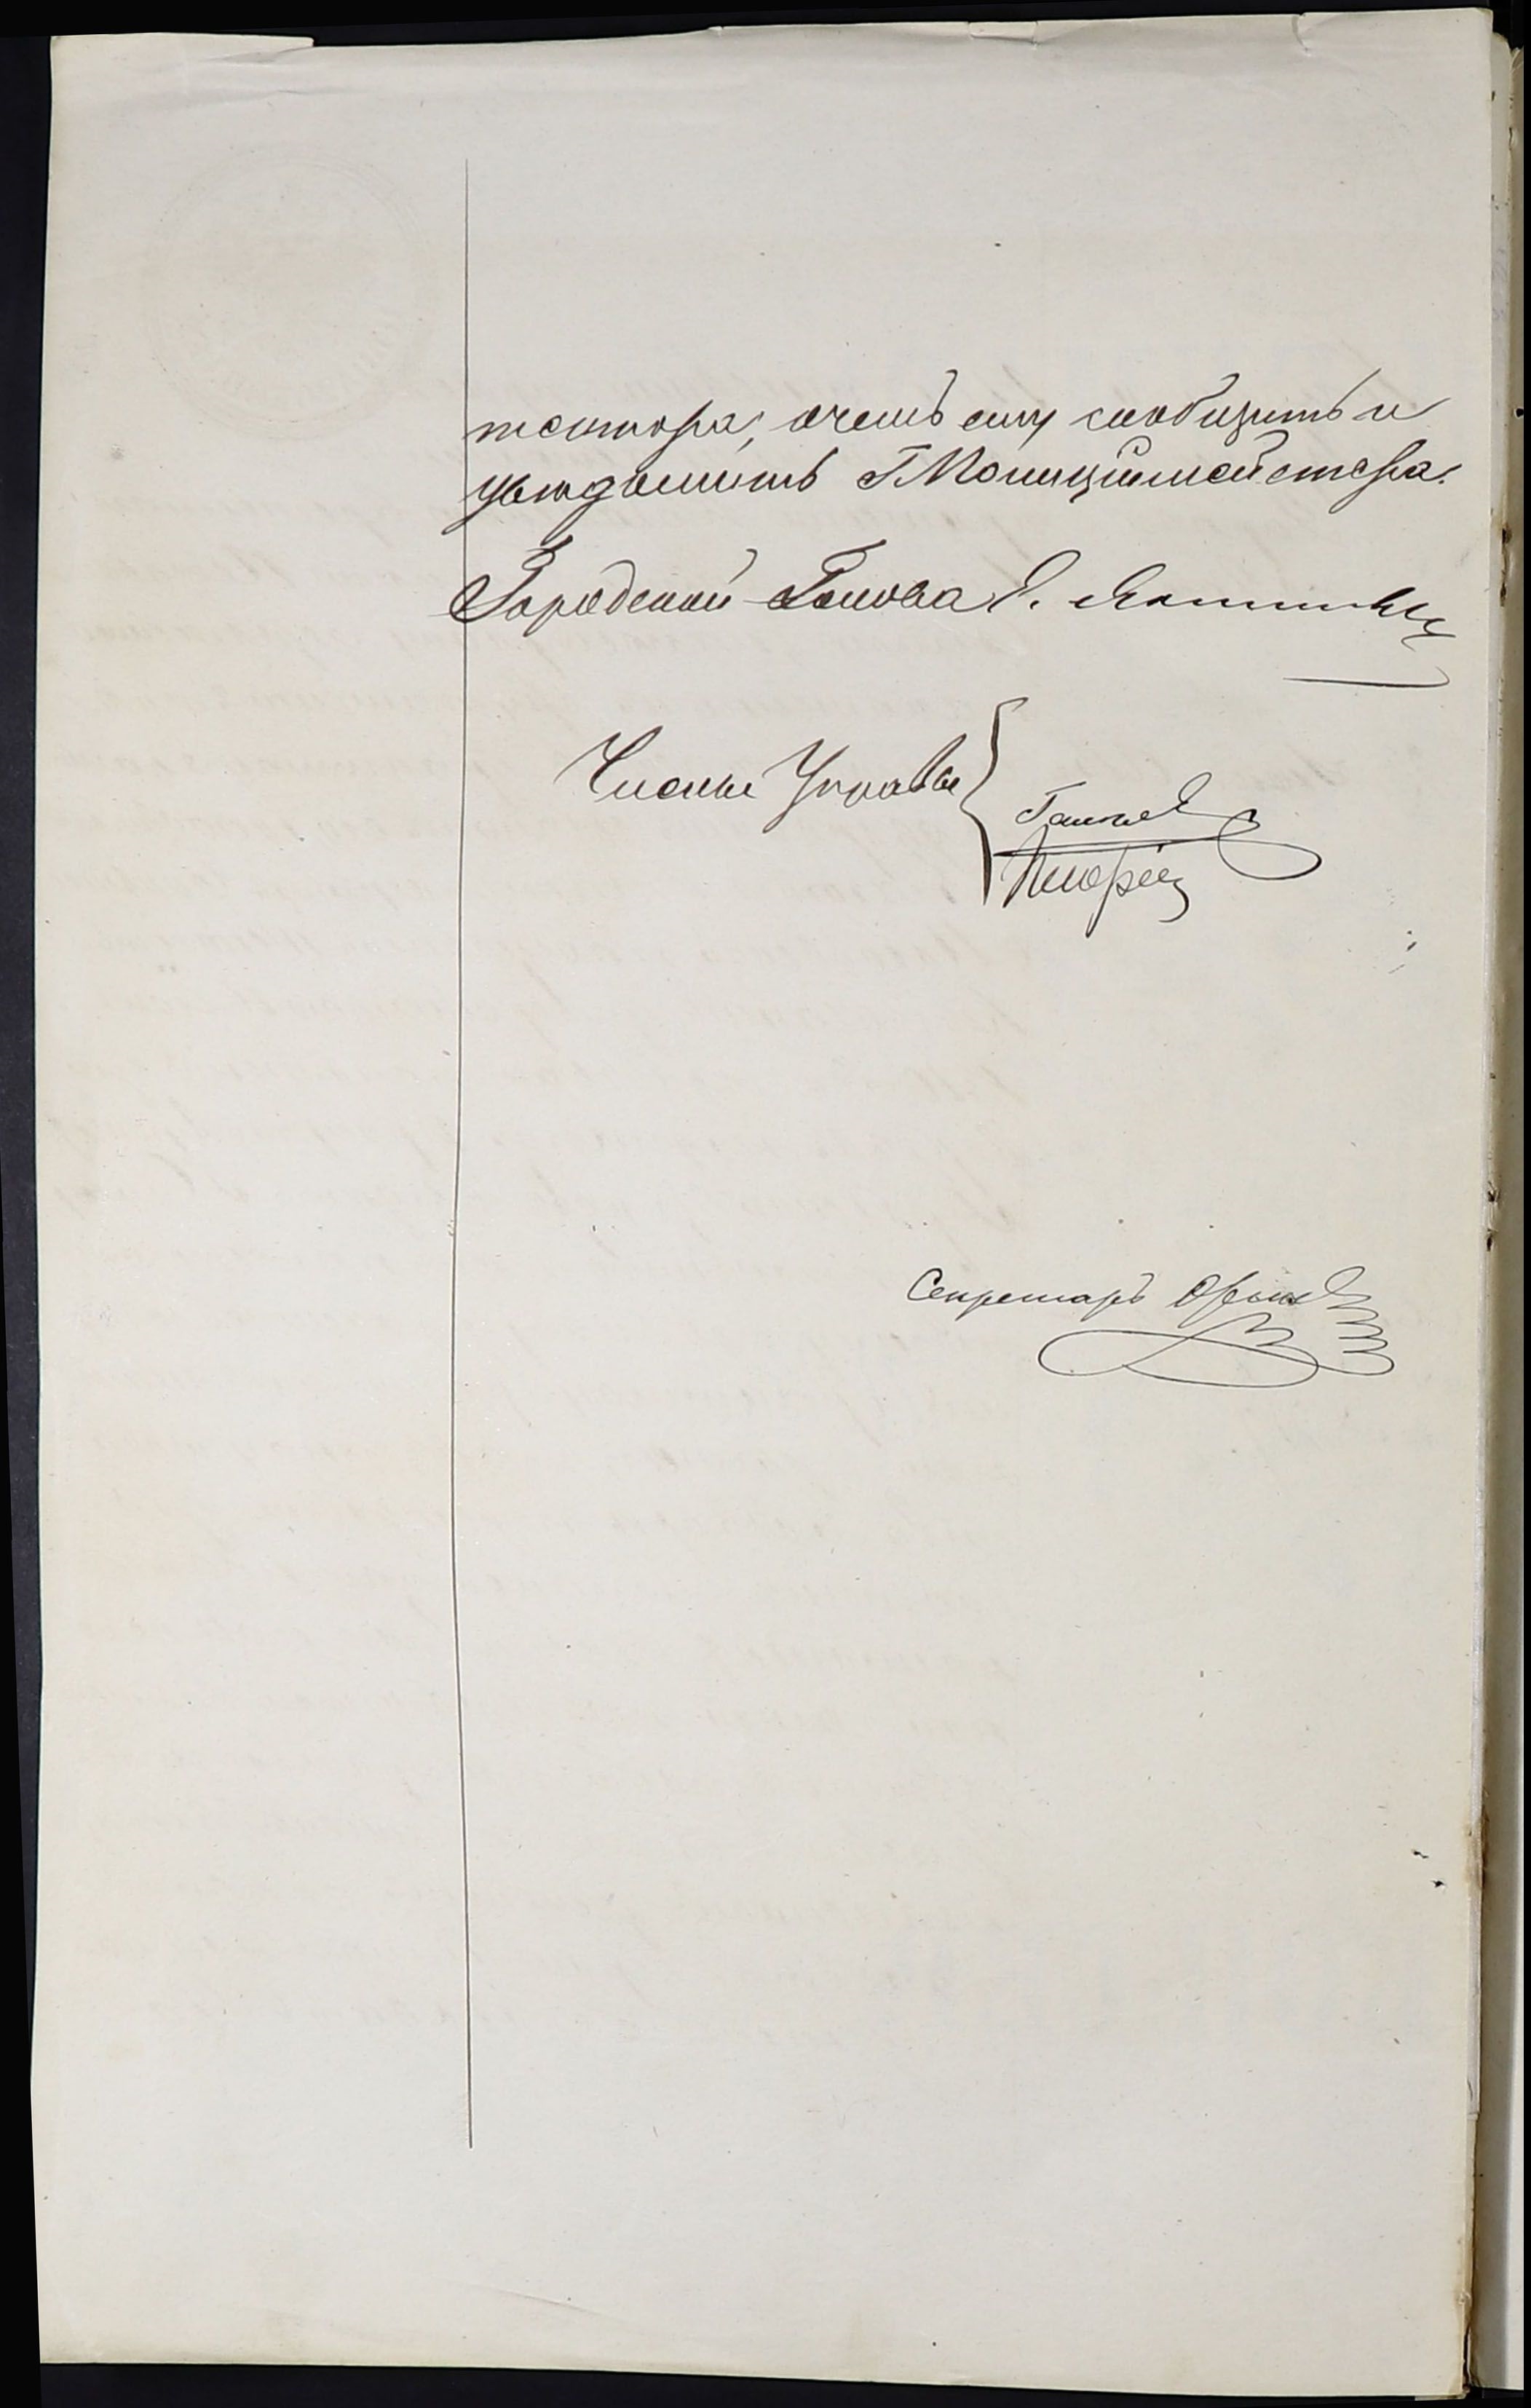 тектора, о чемъ ему сообщить и
увѣдомить Г Полиціймейстера.
Городской Голова
Члены Управы
Секретарь